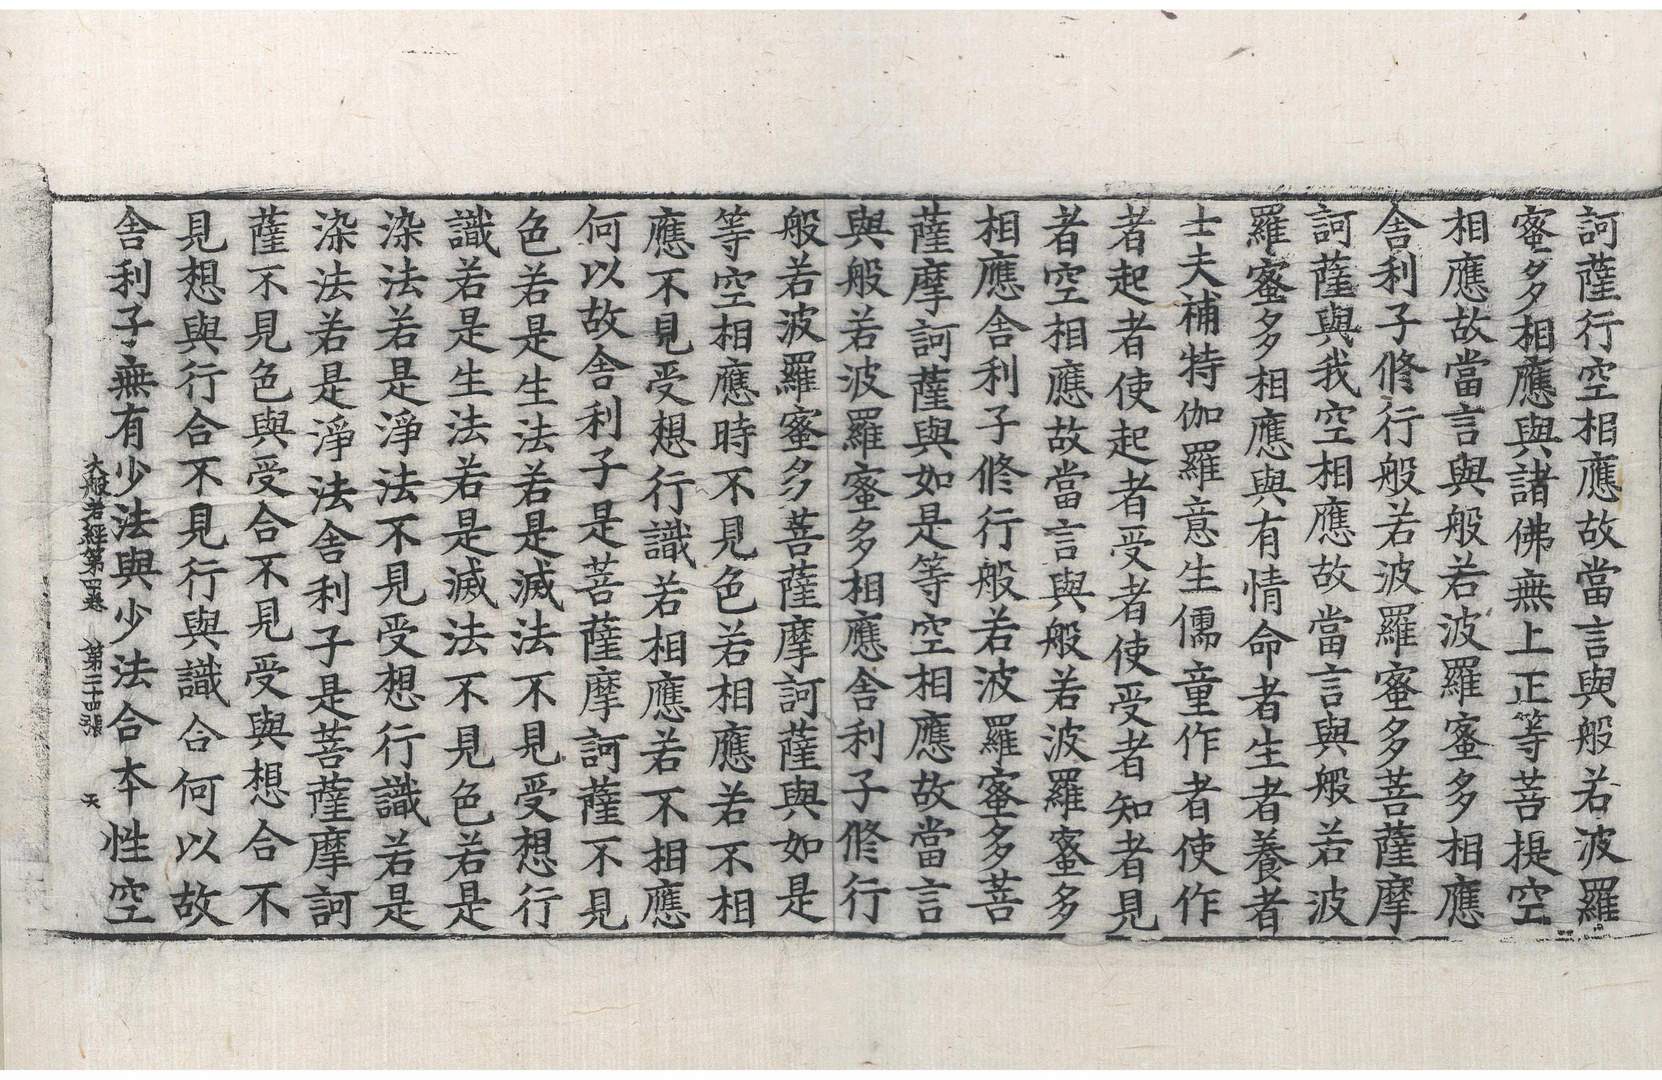 訶薩行空相應故當言與般若波羅
蜜多相應與諸佛無上正等菩提空
相應故當言與般若波羅蜜多相應
舍利子修行般若波羅蜜多菩薩摩
訶薩與我空相應故當言與般若波
羅蜜多相應與有情命者生者養者
士夫補特伽羅意生儒童作者使作
者起者使起者受者使受者知者見
者空相應故當言與般若波羅蜜多
相應舍利子修行般若波羅蜜多菩
薩摩訶薩與如是等空相應故當言
與般若波羅蜜多相應舍利子修行
般若波羅蜜多菩薩摩訶薩與如是
等空相應時不見色若相應若不相
應不見受想行識若相應若不相應
何以故舍利子是菩薩摩訶薩不見
色若是生法若是滅法不見受想行
識若是生法若是滅法不見色若是
染法若是淨法不見受想行識若是
染法若是淨法舍利子是菩薩摩訶
薩不見色與受合不見受與想合不
見想與行合不見行與識合何以故
舍利子無有少法與少法合本性空
大般若經第四卷 第二十四張 天